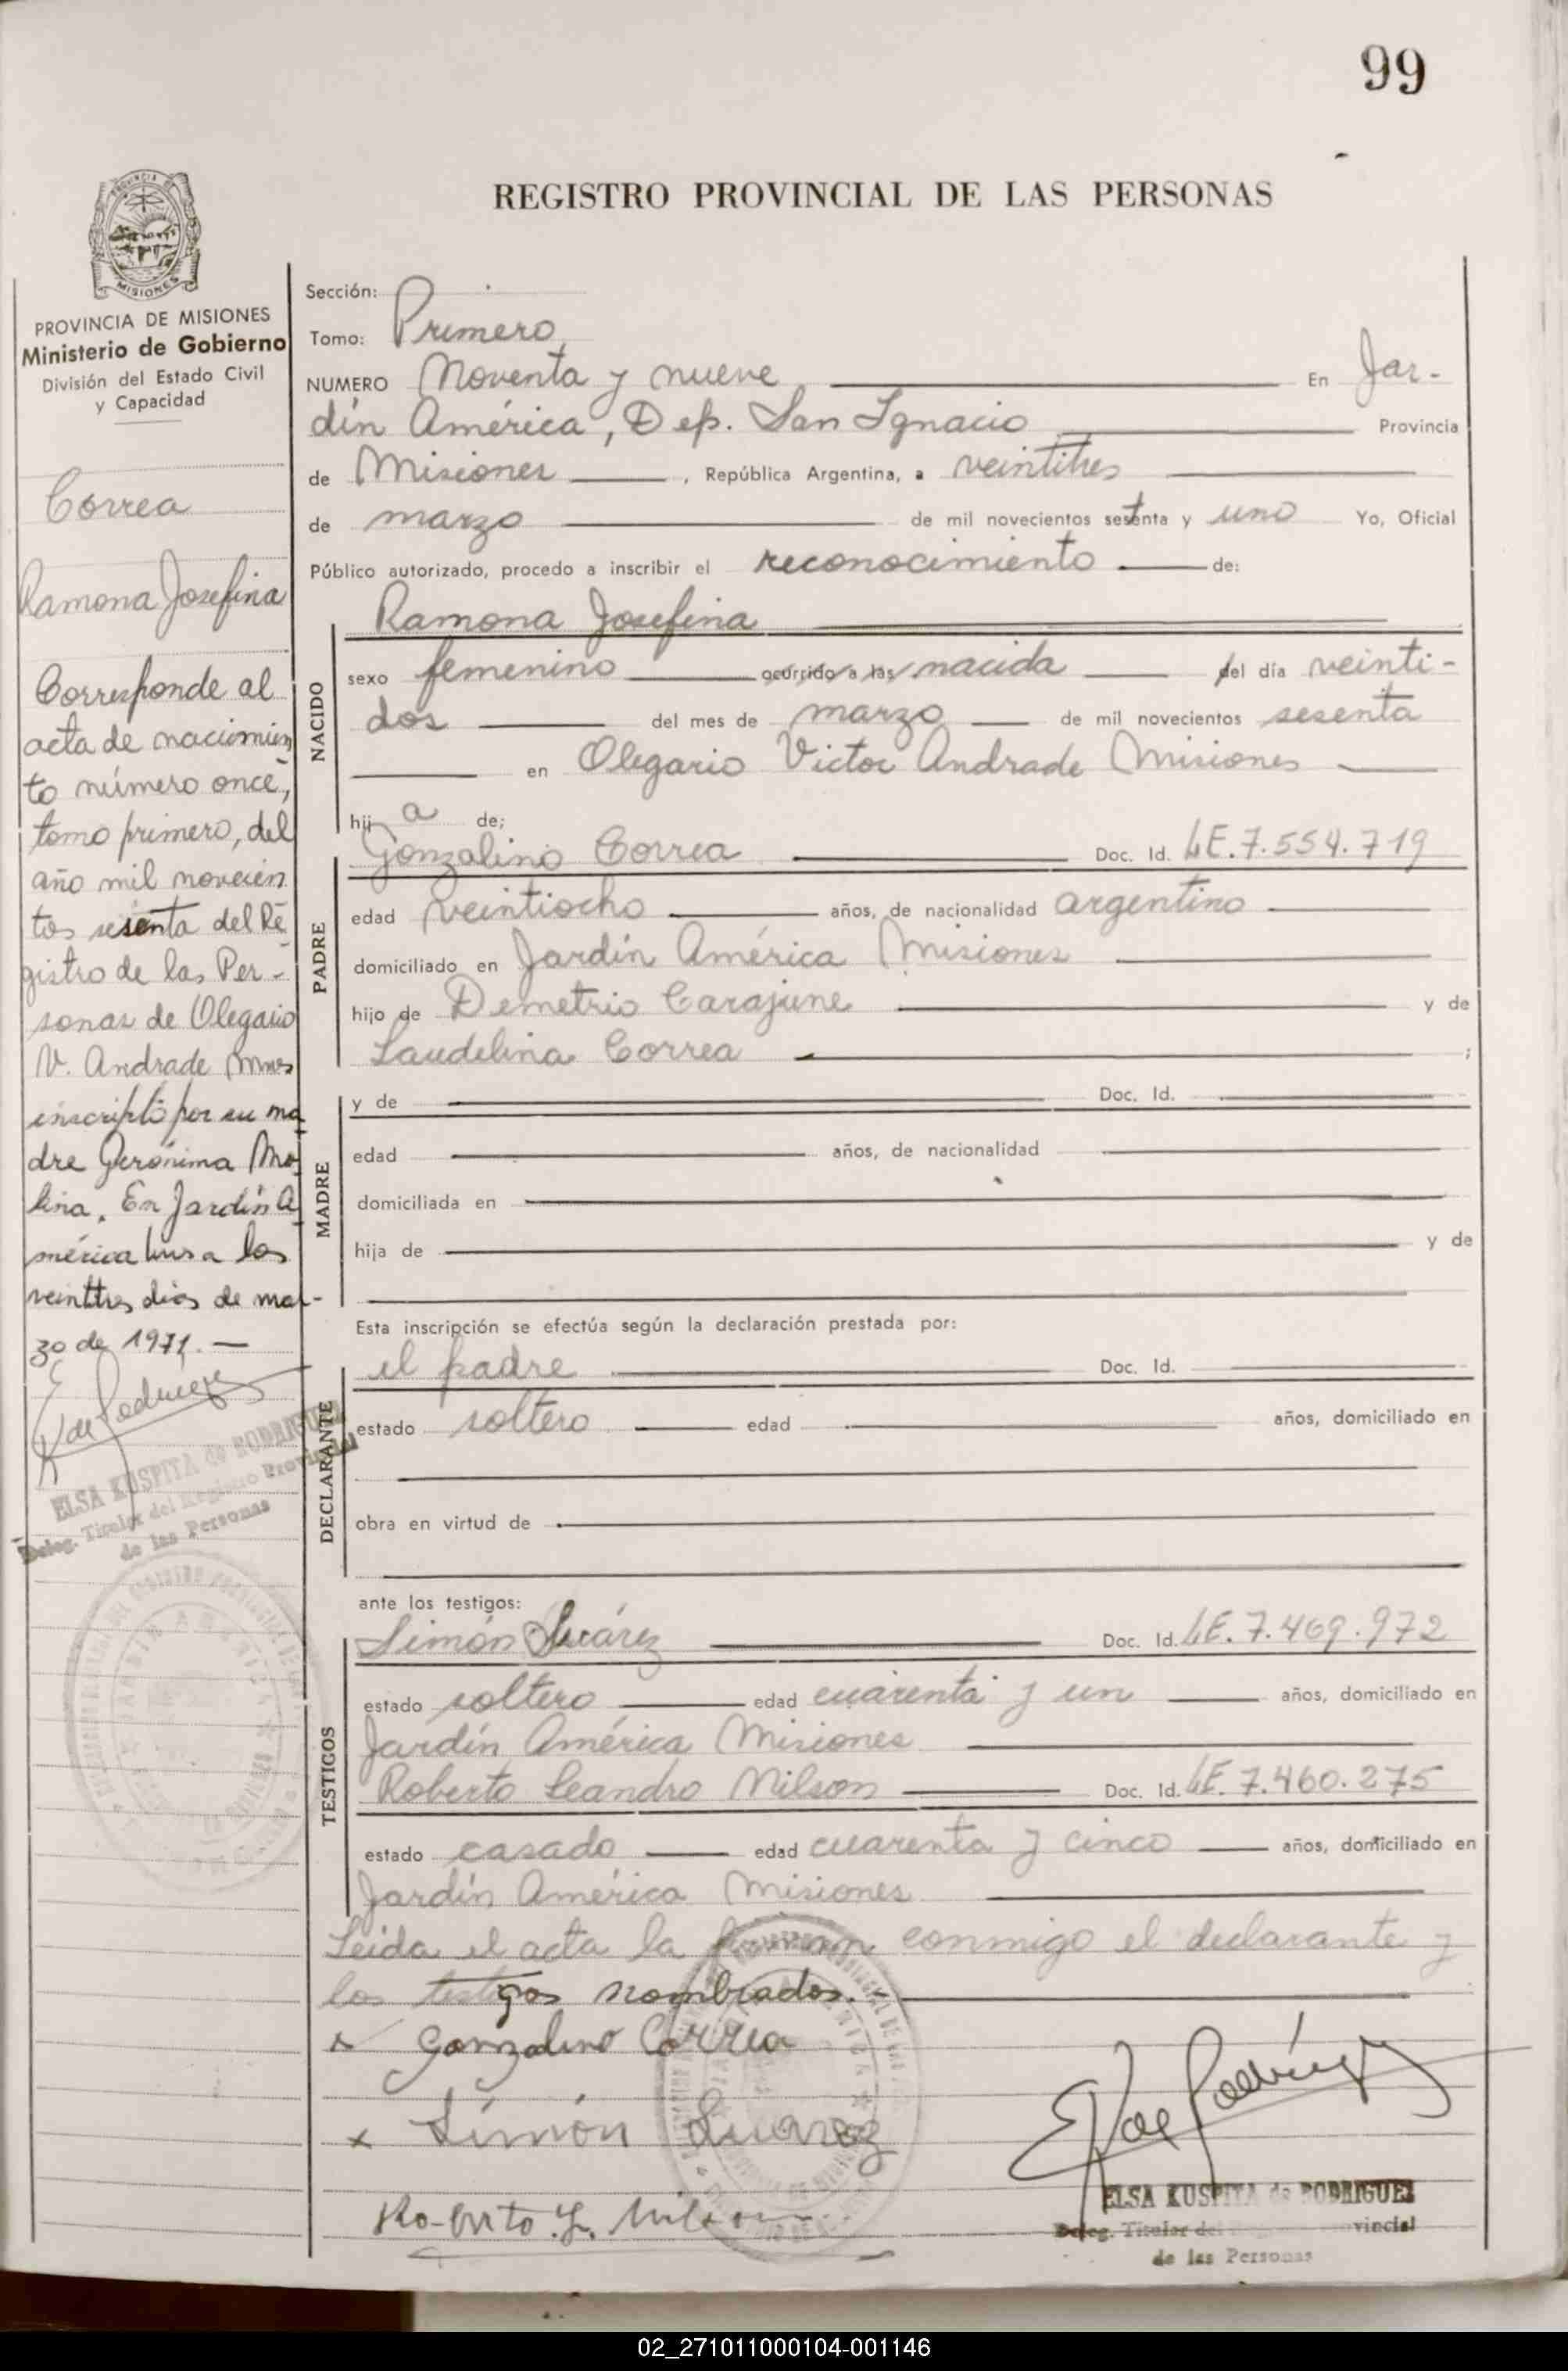 99
REGISTRO PROVINCIAL DE LAS PERSONAS
MISIONES
PROVINCIA DE MISIONES
Ministerio de Gobierno
División del Estado Civil
y Capacidad
Correa
Ramona Josefina
Corresponde al
acta de nacimien
to número once,
tomo primero, del
año mil novecien
tos sesenta del Re
gistro de las Per-
sonas de Olegario
V. Andrade Mnes
inscripto por su ma
dre Gerónima Mo
lina. En Jardín A
mérica Mnes a los
veintitres dias de mar-
zo de 1971. —
ELSA KUSPITA de RODRIGUEZ
Deleg. Titular del Registro Provincial
de las Personas
Sección:
Tomo: Primero
NUMERO Noventa y nueve En Jar-
dín América, Dep. San Ignacio Provincia
de Misiones , República Argentina, a veintitres
de marzo de mil novecientos setenta y uno Yo, Oficial
Público autorizado, procedo a inscribir el reconocimiento de:
NACIDO
Ramona Josefina
sexo femenino ocurrido a las nacida del día veinti-
dos del mes de marzo de mil novecientos sesenta
en Olegario Victor Andrade Misiones
hij a de;
PADRE
Gonzalino Correa Doc. Id. LE.7.554.719
edad veintiocho años, de nacionalidad argentino
domiciliado en Jardín América Misiones
hijo de Demetrio Carajune y de
Laudelina Correa ;
MADRE
y de Doc. Id.
edad años, de nacionalidad
domiciliada en
hija de y de
Esta inscripción se efectúa según la declaración prestada por:
DECLARANTE
el padre Doc. Id.
estado soltero edad años, domiciliado en
obra en virtud de
ante los testigos:
TESTIGOS
Simón Suárez Doc. Id. LE.7.469.972
estado soltero edad cuarenta y un años, domiciliado en
Jardín América Misiones
Roberto Leandro Nilson Doc. Id. LE.7.460.275
estado casado edad cuarenta y cinco años, domiciliado en
Jardín América Misiones
Leida el acta la firman conmigo el declarante y
los testigos nombrados.-
x Gonzalino Correa
x Simón Suarez
Roberto L. Nilson
ELSA KUSPITA de RODRIGUEZ
Deleg. Titular del vincial
de las Personas
02_271011000104-001146